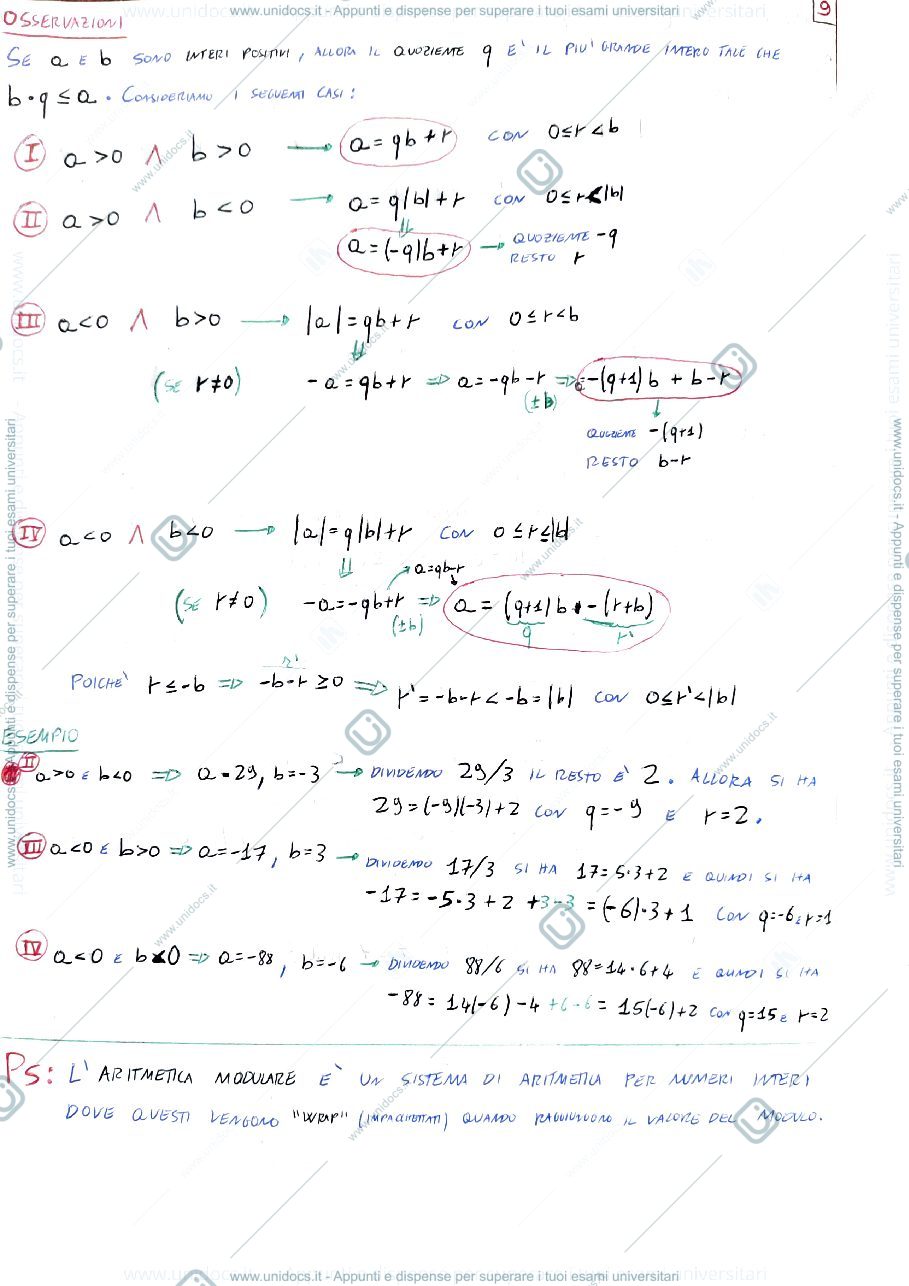 www.unidocs.it - Appunti e dispense per superare i tuoi esami universitari
9
OSSERVAZIONI
SE a E b SONO INTERI POSITIVI, ALLORA IL QUOZIENTE q E' IL PIU' GRANDE INTERO TALE CHE
b·q ≤ a. CONSIDERIAMO I SEGUENTI CASI:
I a>0 ∧ b>0 → a=qb+r CON 0≤r<b
II a>0 ∧ b<0 → a=q|b|+r CON 0≤r<|b|
⇓
a=(-q)b+r → QUOZIENTE -q
RESTO r
III a<0 ∧ b>0 → |a|=qb+r CON 0≤r<b
⇓
(SE r≠0) -a=qb+r ⇒ a=-qb-r ⇒ a=-(q+1)b + b-r
(±b)
QUOZIENTE -(q+1)
RESTO b-r
IV a<0 ∧ b<0 → |a|=q|b|+r CON 0≤r≤|b|
⇓ a=qb-r
(SE r≠0) -a=-qb+r ⇒ a=(q+1)b -(r+b)
(±b) q r'
r'
POICHE' r≤-b ⇒ -b-r≥0 ⇒ r'=-b-r<-b=|b| CON 0≤r'<|b|
ESEMPIO
II a>0 E b<0 ⇒ a=29, b=-3 → DIVIDENDO 29/3 IL RESTO E' 2. ALLORA SI HA
29=(-9)(-3)+2 CON q=-9 E r=2.
III a<0 E b>0 ⇒ a=-17, b=3 → DIVIDENDO 17/3 SI HA 17=5·3+2 E QUINDI SI HA
-17=-5·3+2 +3-3 =(-6)·3+1 CON q=-6 E r=1
IV a<0 E b<0 ⇒ a=-88, b=-6 → DIVIDENDO 88/6 SI HA 88=14·6+4 E QUINDI SI HA
-88=14(-6)-4 +6-6 = 15(-6)+2 CON q=15 E r=2
PS: L'ARITMETICA MODULARE E' UN SISTEMA DI ARITMETICA PER NUMERI INTERI
DOVE QUESTI VENGONO "WRAP" (IMPACCHETTATI) QUANDO RAGGIUNGONO IL VALORE DEL MODULO.
www.unidocs.it - Appunti e dispense per superare i tuoi esami universitari